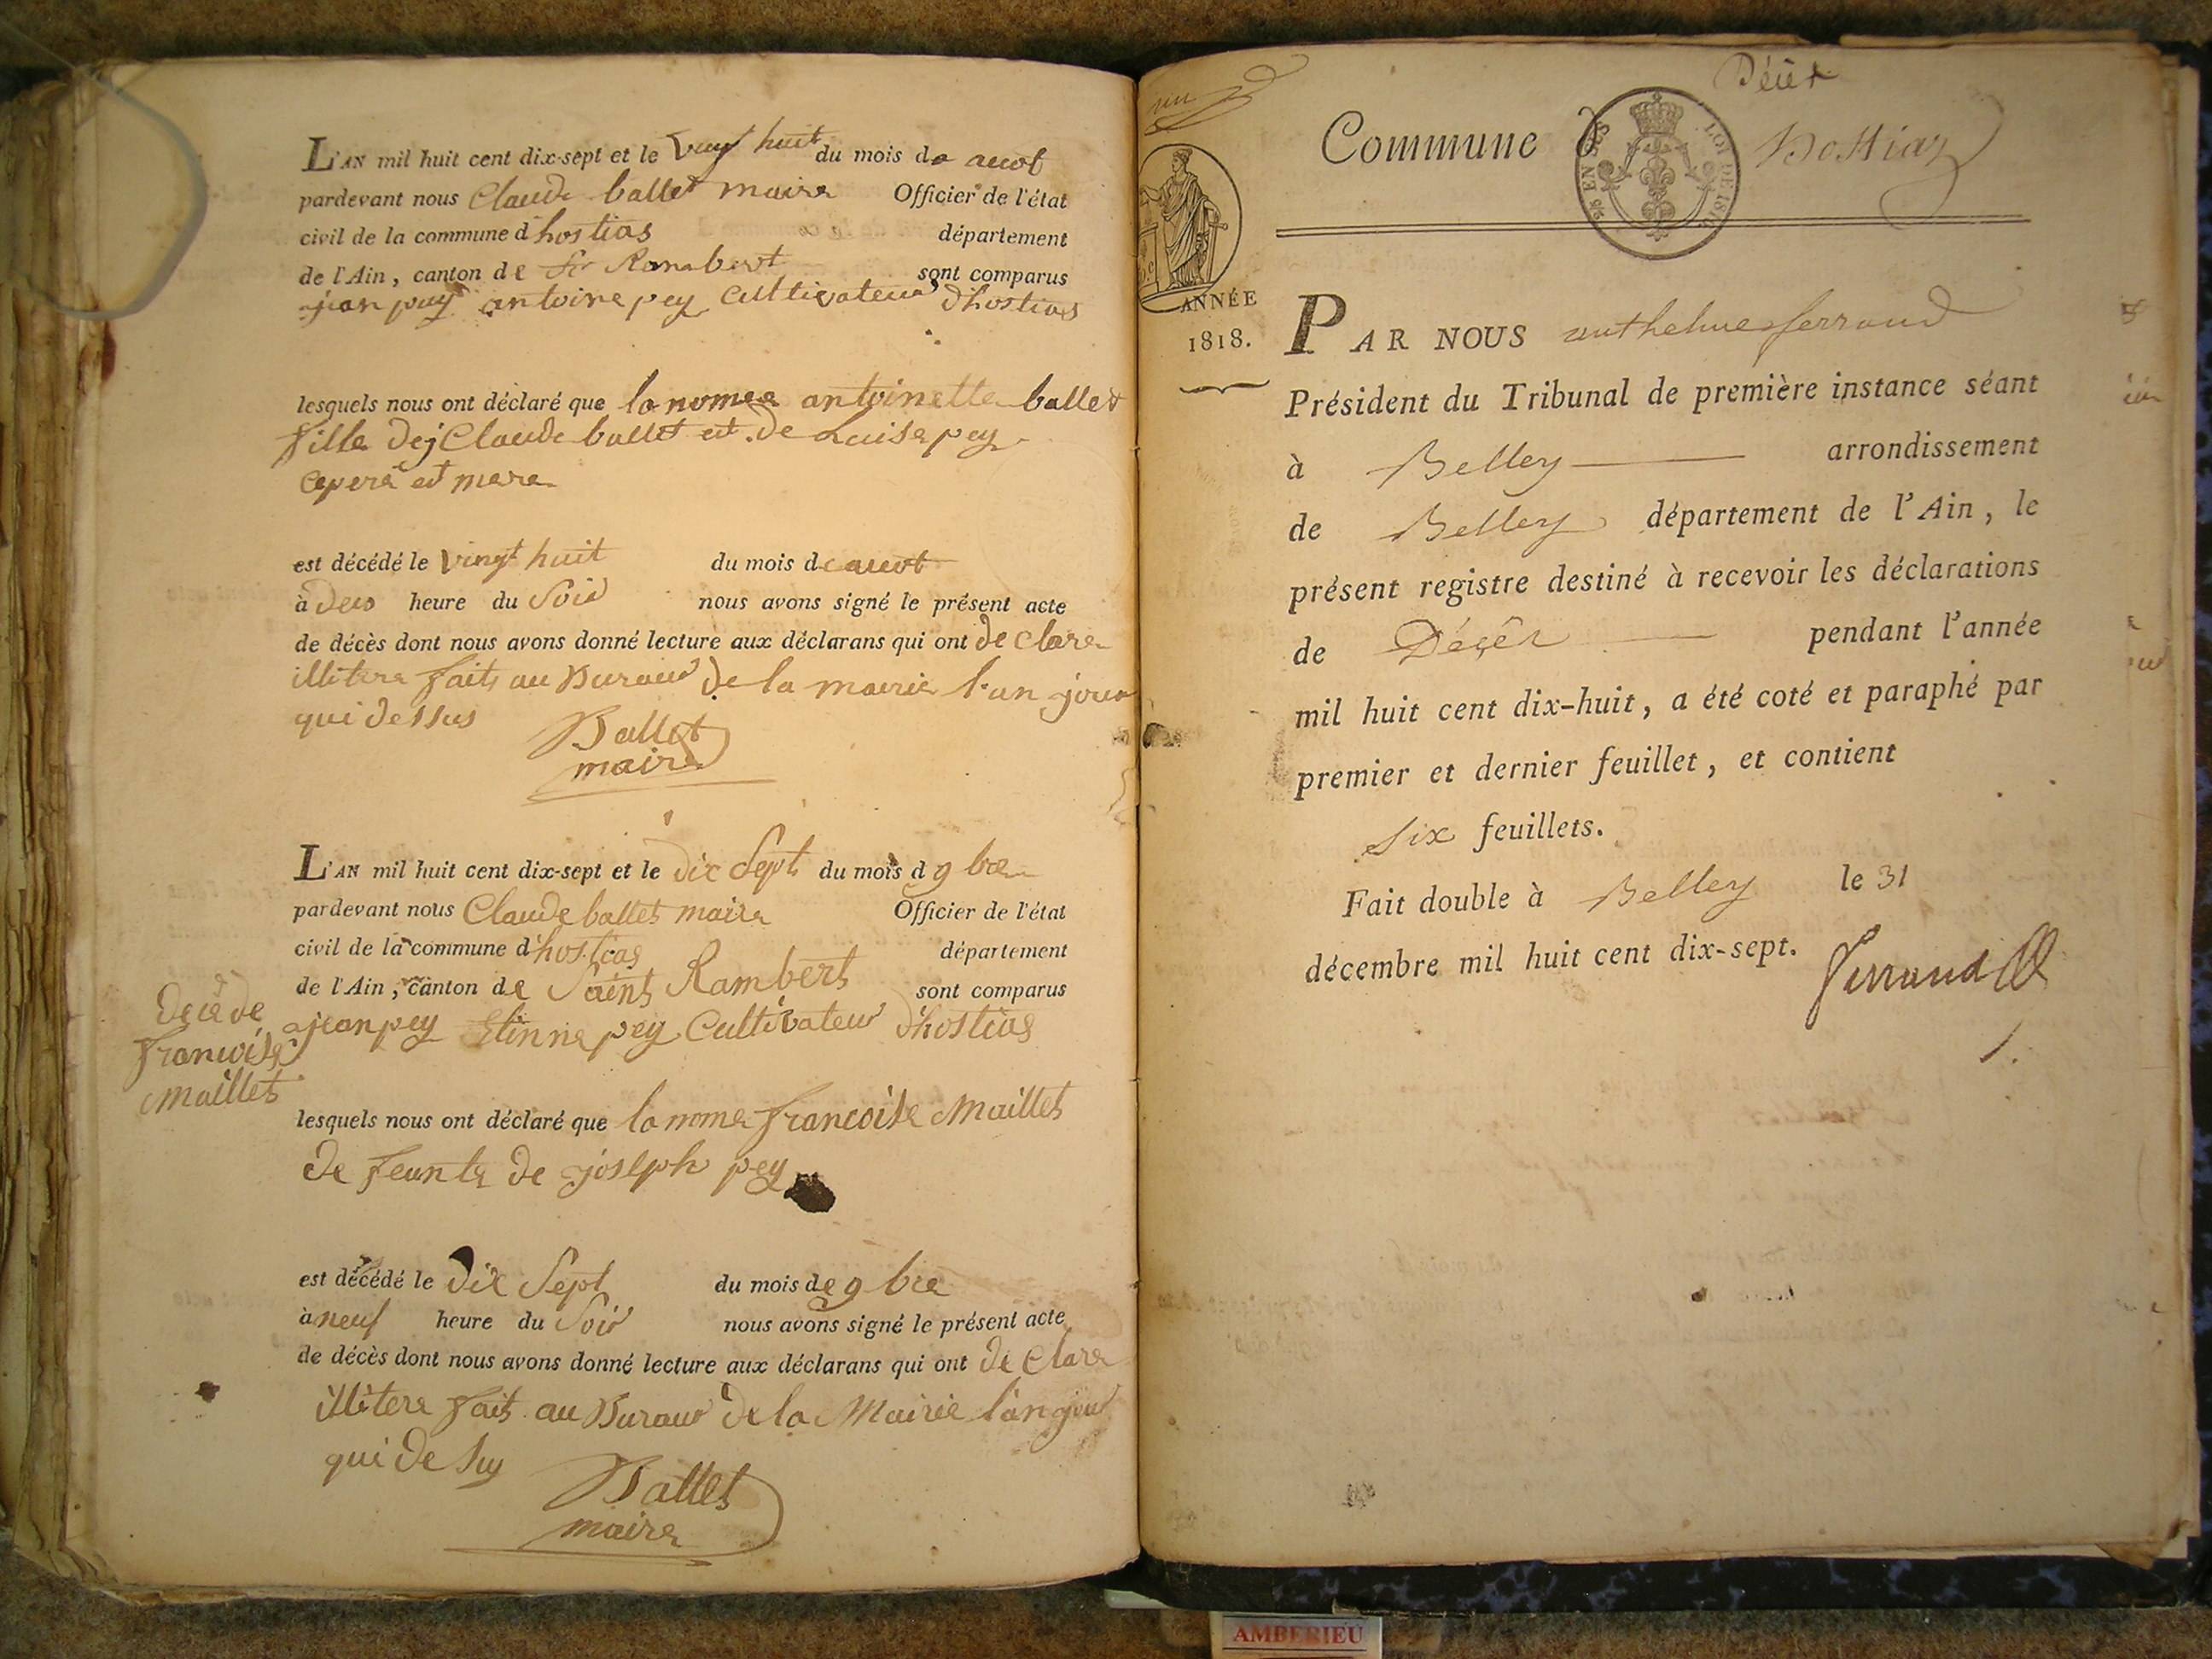 L'AN mil huit cent dix-sept et le vingt huit du mois de auot
pardevant nous Claude ballet maire Officier de l'état
civil de la commune d'hostias département
de l'Ain, canton de St Rambert sont comparus
jean pey antoine pey Cultivateur d'hostias
lesquels nous ont déclaré que la nomee antoinette ballet
fille dej Claude ballet et de Luise pey
ce pere et mere
est décédé le vingt huit du mois de auot
à deus heure du Soir nous avons signé le présent acte
de décès dont nous avons donné lecture aux déclarans qui ont de clare
illitere faits au Buraur de la mairie l'an jour
qui dessus
Ballet
maire
L'AN mil huit cent dix-sept et le dix Sept du mois d 9 bre
pardevant nous Claude ballet maire Officier de l'état
civil de la commune d'hostias département
de l'Ain, canton de Saint Rambert sont comparus
jean pey Etinne pey Cultivateur d'hostias
decè de
francoise
Maillet
lesquels nous ont déclaré que la nome francoise Maillet
de feunte de joseph pey
est décédé le Dix Sept du mois de 9 bre
à neuf heure du Soir nous avons signé le présent acte
de décès dont nous avons donné lecture aux déclarans qui ont de Clare
illitere fait au Buraur de la Mairie l'an jour
qui de suy
Ballet
maire
Décès
Commune d Hostiaz
LOI DE 1816
ANNÉE
1818.
PAR NOUS anthelme ferrand
Président du Tribunal de première instance séant
à Belley arrondissement
de Belley département de l'Ain, le
présent registre destiné à recevoir les déclarations
de Décès pendant l'année
mil huit cent dix-huit, a été coté et paraphé par
premier et dernier feuillet, et contient
six feuillets.
Fait double à Belley le 31
décembre mil huit cent dix-sept.
ferrand
1.
AMBERIEU